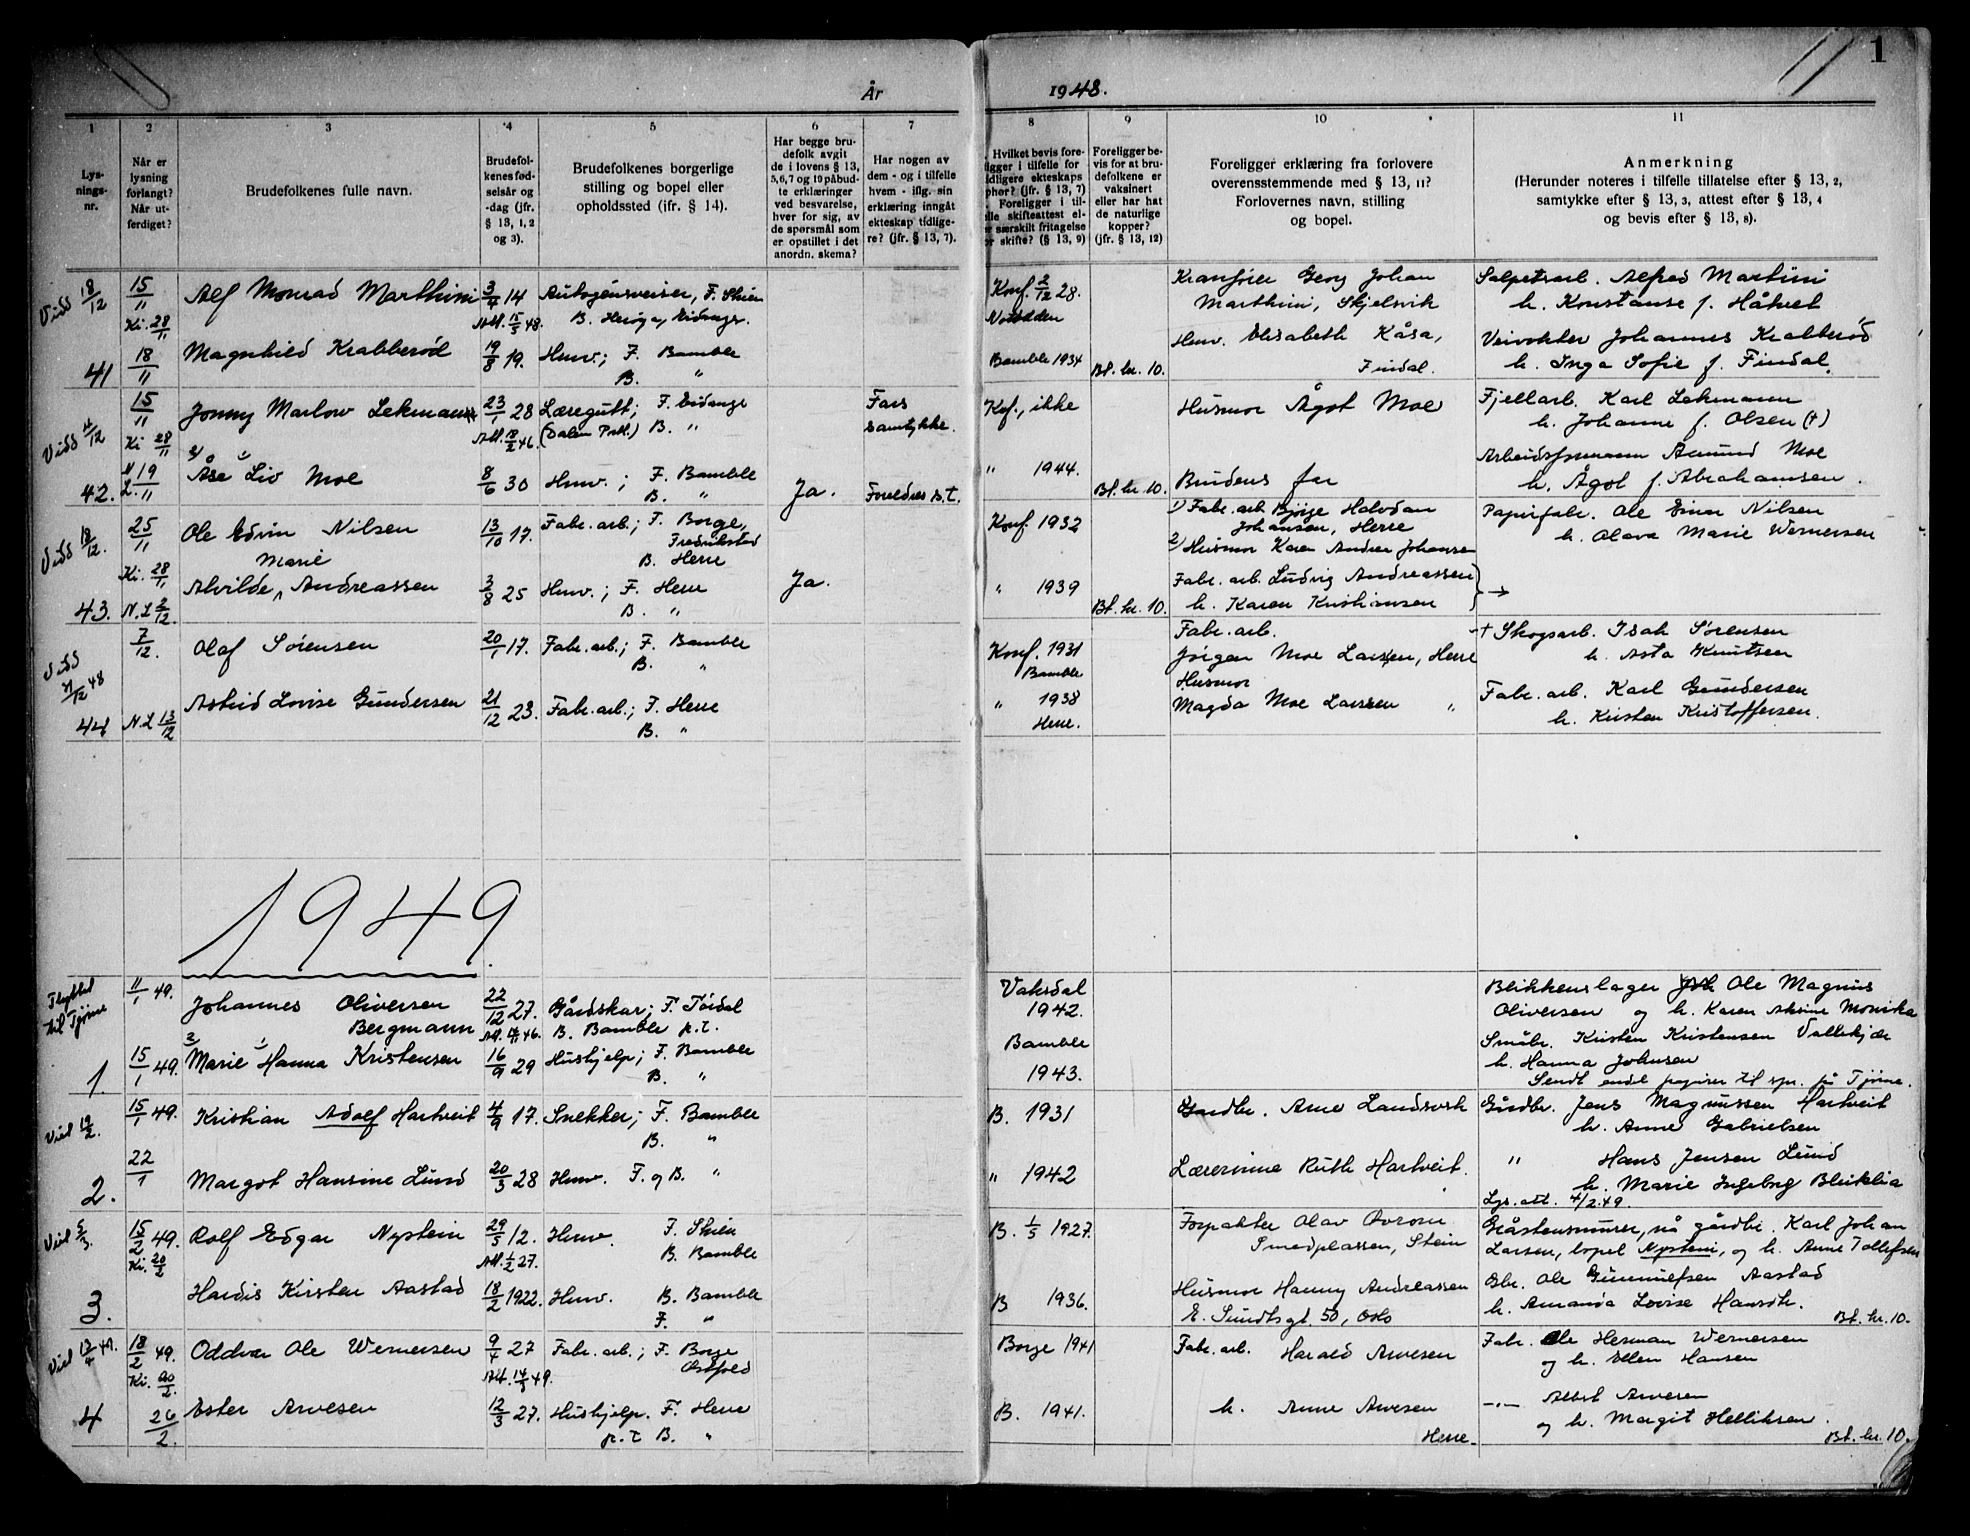 1
År 1948.
1 2 3 4 5 6 7 8 9 10 11
Lys-
nings-
nr.
Når er
lysning
forlangt?
Når ut-
ferdiget?
Brudefolkenes fulle navn.
Brudefol-
kenes fød-
selsår og
-dag (jfr.
§ 13, 1, 2
og 3).
Brudefolkenes borgerlige
stilling og bopel eller
opholdssted (ifr. § 14).
Har begge bru-
defolk avgit
de i lovens § 13,
5, 6, 7 og 10 påbud-
te erklæringer
ved besvarelse,
hver for sig, av
de spørsmål som
er opstillet i det
anordn. skema?
Har nogen av
dem - og i tilfelle
hvem - iflg. sin
erklæring inngått
ekteskap tidlige-
re? (jfr. § 13, 7).
Hvilket bevis fore-
ligger i tilfelle for
tidligere ekteskaps
ophør? (jfr. § 13, 7)
Foreligger i til-
elle skifteattest el-
r særskilt fritagelse
or skifte? (§ 13, 9)
Foreligger be-
vis for at bru-
defolkene er
vaksinert
eller har hat
de naturlige
kopper?
(jfr. § 13, 12)
Foreligger erklæring fra forlovere
overensstemmende med § 13, 11?
Forlovernes navn, stilling
og bopel.
Anmerkning
(Herunder noteres i tilfelle tillatelse efter § 13, 2,
samtykke efter § 13, 3, attest efter § 13, 4
og bevis efter § 13, 8).
Vidd 18/12 15/11 Alf Monrad Marthini 3/4 14 Autogensveiser, F. Skien Konf. 2/12 28. Kranfører Georg Johan Salpetrarb. Alfred Martini
Ki. 28/11 Att. 15/5 48. B. Herøya, Eidanger. Notodden Marthini, Skjelsvik h. Konstanse f. Håtvet
18/11 Magnhild Krabberød 19/8 19. Husv.; F. Bamble Husv. Elisabeth Kåsa, Veivokter Johannes Krabberød
41 B. " Bamble 1934 Bt. kr. 10. Findal. h. Inga Sofie f. Findal.
15/11 Jonny Marlow Lekmann 23/1 28 Læregutt; F. Eidanger Fars Kof., ikke Husmor Ågot Moe Fjellarb. Karl Lekmann
Vidd 4/12 Ki 28/11 Att. 18/2 46. (Dalen Portl.) B. " samtykke. h. Johanne f. Olsen (†)
N.L. 19/11 Åse Liv Moe 8/6 30 Husv.; F. Bamble " 1944. Arbeidsformann Aamund Moe
42. B. " Ja. Foreldres s.t. Bt. kr. 10. Brudens far h. Ågot f. Abrahamsen.
Vidd 18/12. 25/11 Ole Edvin Nilsen 13/10 17. Fabr. arb.; F. Borge, Konf. 1932 1) Fabr. arb. Børge Halvdan Papirfabr. Ole Einar Nilsen
Fredrikstad Johansen, Herre h. Olava Marie Wernersen
Marie B. Herre 2) Husmor Karen Andrea Johansen
Ki. 28/11 Alvilde ^ Andreassen 3/8 25 Husv.; F. Herre Ja. " 1939 Fabr. arb. Ludvig Andreassen
43. N.L. 2/12. B. " Bt. kr. 10. h. Karen Kristiansen →
7/12. Olaf Sørensen 20/1 17. Fabr. arb.; F. Bamble Konf. 1931 Fabr. arb. † Skogsarb. Isak Sørensen
B. " Bamble Jørgen Moe Larsen, Herre h. Asta Knutsen
Vidd 31/12 48 Astrid Lovise Gundersen 21/12 23. Fabr. arb.; F. Herre " 1938 Husmor Fabr. arb. Karl Gundersen
44 N.L. 13/12 B. " Herre. Magda Moe Larssen " h. Kirsten Kristoffersen.
1949
Flyttet til Tjøme 11/1 49. Johannes Oliversen 22/12 27. Gårdskar; F. Tördal Vaksdal Blikkenslager Ole Magnus
Bergmann Att. B. Bamble p.t. 1942. Oliversen og h. Karen Monika
15/1 49. Marie Hanna Kristensen 16/9 29 Hushjelp; F. Bamble Bamble Småbr. Kristen Kristensen Vallekjær
1. B. " 1943. h. Hanna Johnsen
Sendt endel papirer til spr. på Tjøme.
Viet 12/2. 15/1 49. Kristian Adolf Hartveit 4/9 17. Snekker; F. Bamble B. 1931 Gardbr. Arne Landsverk Gårdbr. Jens Magnussen Hartveit
B. " h. Anne Gabrielsen
22/1 Margot Hansine Lund 20/3 28 Husv. F. og B. " " 1942 Lærerinne Ruth Hartveit. " Hans Jensen Lund
2. h. Marie Ingeborg Bleiklia
Lys. att. 4/2.49.
Viet 5/3. 15/2 49. Rolf Edgar Nystein 29/5 12. Husv. F. Skien B. 1/5 1927. Forpakter Olav Gråsteinsmurer, nå gårdbr. Karl Johan
Ki. 20/2 Att. 1/2 27. B. Bamble Smedplassen, Stein Larsen, bopel Nystein, og h. Anne Tollefsen
Hardis Kirsten Aastad 18/2 1922. Husv. B. Bamble B 1936. Husmor Hanny Andreassen Gbr. Ole Gunnulfsen Aastad
3. F. " E. Sundtsgt. 50, Oslo h. Amanda Lovise Hansdtr.
Bt. kr. 10.
Viet 13/4 49. 18/2 49. Oddvar Ole Wernersen 9/4 27 Fabr. arb.; F. Borge Borge 1941 Fabr. arb. Harald Arvesen Fabr. Ole Herman Wernersen
Ki. 20/2. Att. 14/3 49. Østfold og h. Ellen Hansen
Ester Arvesen 12/3 27. Hushjelp. F. Herre B. 1941. h. Anne Arvesen -"- Albert Arvesen
4 26/2. p.t. B. " Herre. og h. Margit Helliksen.
Bt. kr. 10.